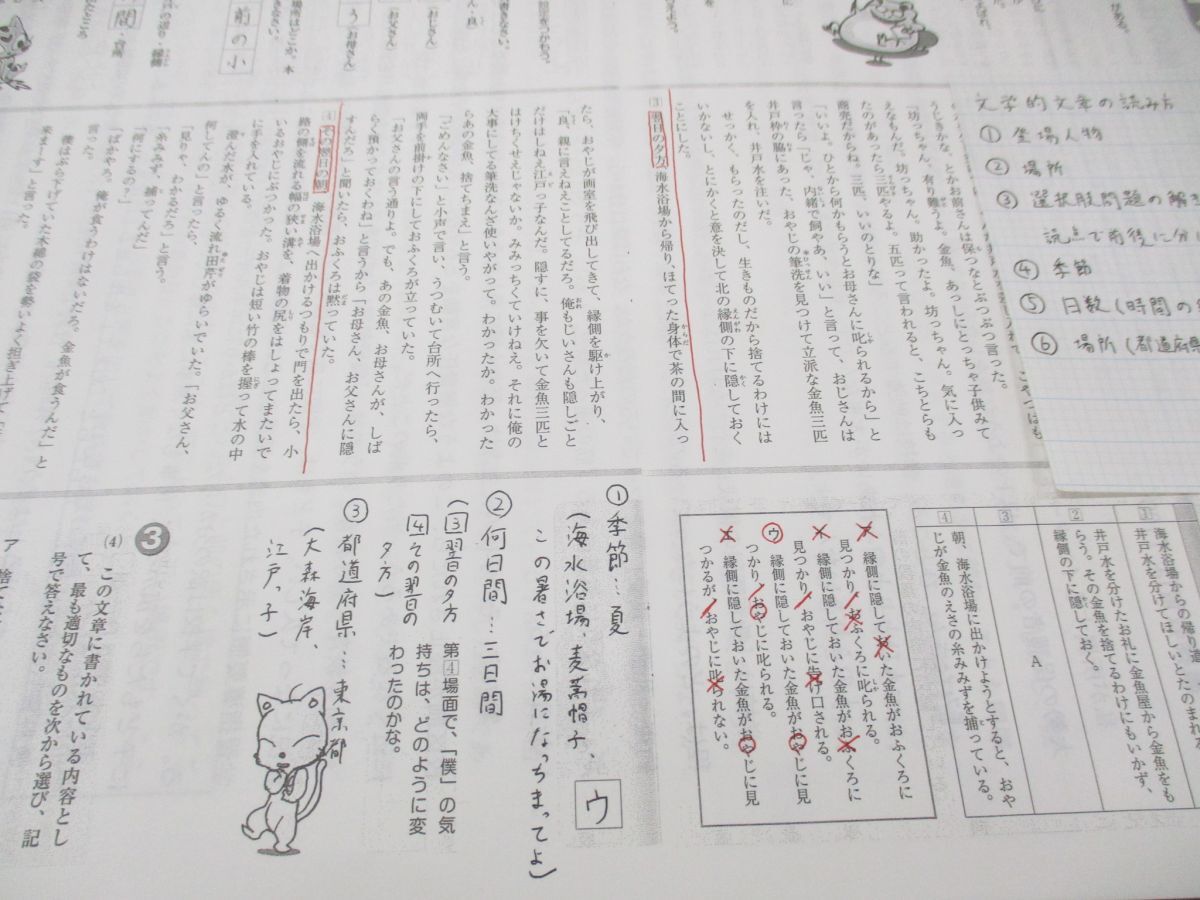 文学的文章の読み方
① 登場人物
② 場所
③ 選択肢問題の解き
読点で前後に分け
④ 季節
⑤ 日数(時間の
⑥ 場所(都道府県
うじきかな、とかお前さんは保つなとぶつぶつ言った。
「坊っちゃん、有り難うよ。金魚、あっしにとっちゃ子供みて
えなもんだ。坊っちゃん。助かったよ。坊っちゃん。気に入っ
たのがあったら三匹やるよ。五匹って言われると、こちとらも
商売だからね。三匹、いいのとりな」
「いいよ。ひとから何かもらうとお母さんに叱られるから」と
言ったら「じゃ、内緒で飼やあ、いい」と言って、おじさんは
井戸枠の脇にあった、おやじの筆洗を見つけて立派な金魚三匹
を入れ、井戸水を注いだ。
せっかく、もらったのだし、生きものだから捨てるわけには
いかないし、とにかくと意を決して北の縁側の下に隠しておく
ことにした。
3 翌日の夕方、海水浴場から帰り、ほてった身体で茶の間に入っ
たら、おやじが画室を飛び出してきて、縁側を駆け上がり、
「良、親に言えねえことしてるだろ。俺もじいさんも隠しごと
だけはしねえ江戸っ子なんだ。隠すに、事を欠いて金魚三匹と
はけちくせえじゃないか。みみっちくていけねえ。それに俺の
大事にしてる筆洗なんざ使いやがって。わかったか。わかった
らあの金魚、捨てちまえ」と言う。
「ごめんなさい」と小声で言い、うつむいて台所へ行ったら、
両手を前掛けの下にしておふくろが立っていた。
「お父さんの言う通りよ。でも、あの金魚、お母さんが、しば
らく預かっておくわね」と言うから「お母さん、お父さんに隠
すんだろ」と聞いたら、おふくろは黙っていた。
4 その翌日の朝、海水浴場へ出かけるつもりで門を出たら、小
路の側を流れる幅の狭い溝を、着物の尻をはしょってまたいで
いるおやじにぶつかった。おやじは短い竹の棒を握って水の中
に手を入れている。
澄んだ水が、ゆるく流れ田芹がゆらいでいた。「お父さん、
何してんの」と言ったら、
「見りゃ、わかるだろ」と言う。
「糸みみず、捕ってんだ」
「何にするの?」
「ばかやろ。俺が食うわけはないだろ。金魚が食うんだ」と
言った。
来まーす」と言った。
1
海水浴場からの帰り道
井戸水を分けてほしいとたのまれる
2
井戸水を分けたお礼に金魚屋から金魚をも
らう。その金魚を捨てるわけにもいかず、
縁側の下に隠しておく。
3
A
4
朝、海水浴場に出かけようとすると、おや
じが金魚のえさの糸みみずを捕っている。
ア 縁側に隠しておいた金魚がおふくろに
見つかり、おふくろに叱られる。
イ 縁側に隠しておいた金魚がおふくろに
見つかり、おやじに告げ口される。
ウ 縁側に隠しておいた金魚がおやじに見
つかり、おやじに叱られる。
エ 縁側に隠しておいた金魚がおやじに見
つかるが、おやじに叱られない。
ウ
① 季節…夏
(海水浴場、麦藁帽子、
この暑さでお湯になっちまってよ)
② 何日間…三日間
(3 翌日の夕方
4 その翌日の
夕方)
第4場面で、「僕」の気
持ちは、どのように変
わったのかな。
③ 都道府県…東京都
(大森海岸、
江戸っ子)
3
(4) この文章に書かれている内容とし
て、最も適切なものを次から選び、記
号で答えなさい。